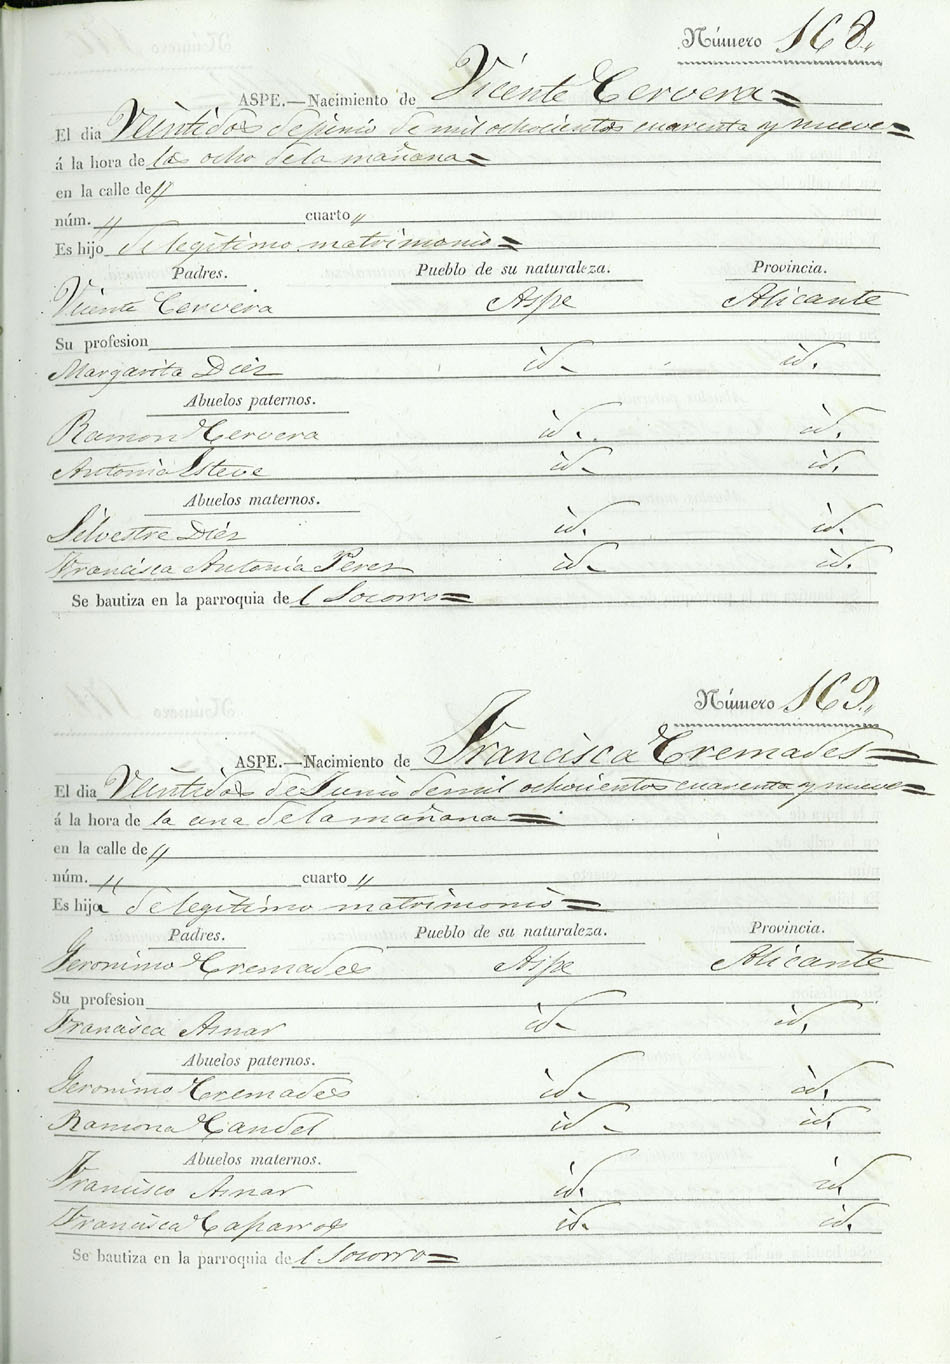 Número 168.,
ASPE.—Nacimiento de Vicente Cervera=
El dia Veintidos de junio de mil ochocientos cuarenta y nueve=
á la hora de las ocho de la mañana=
en la calle de "
núm. " cuarto "
Es hijo de legitimo matrimonio=
Padres. Pueblo de su naturaleza. Provincia.
Vicente Cervera Aspe Alicante
Su profesion
Margarita Diez id. id.
Abuelos paternos.
Ramon Cervera id. id.
Antonia Esteve id. id.
Abuelos maternos.
Silvestre Diez id. id.
Francisca Antonia Perez id. id.
Se bautiza en la parroquia de l Socorro=
Número 169.,
ASPE.—Nacimiento de Francisca Cremades=
El dia Veintidos de Junio de mil ochocientos cuarenta y nueve=
á la hora de la una de la mañana=
en la calle de "
núm. " cuarto "
Es hija de legitimo matrimonio=
Padres. Pueblo de su naturaleza. Provincia.
Geronimo Cremades Aspe Alicante
Su profesion
Francisca Asnar id. id.
Abuelos paternos.
Geronimo Cremades id. id.
Ramona Candel id. id.
Abuelos maternos.
Francisco Asnar id. id.
Francisca Caparros id. id.
Se bautiza en la parroquia de l Socorro=